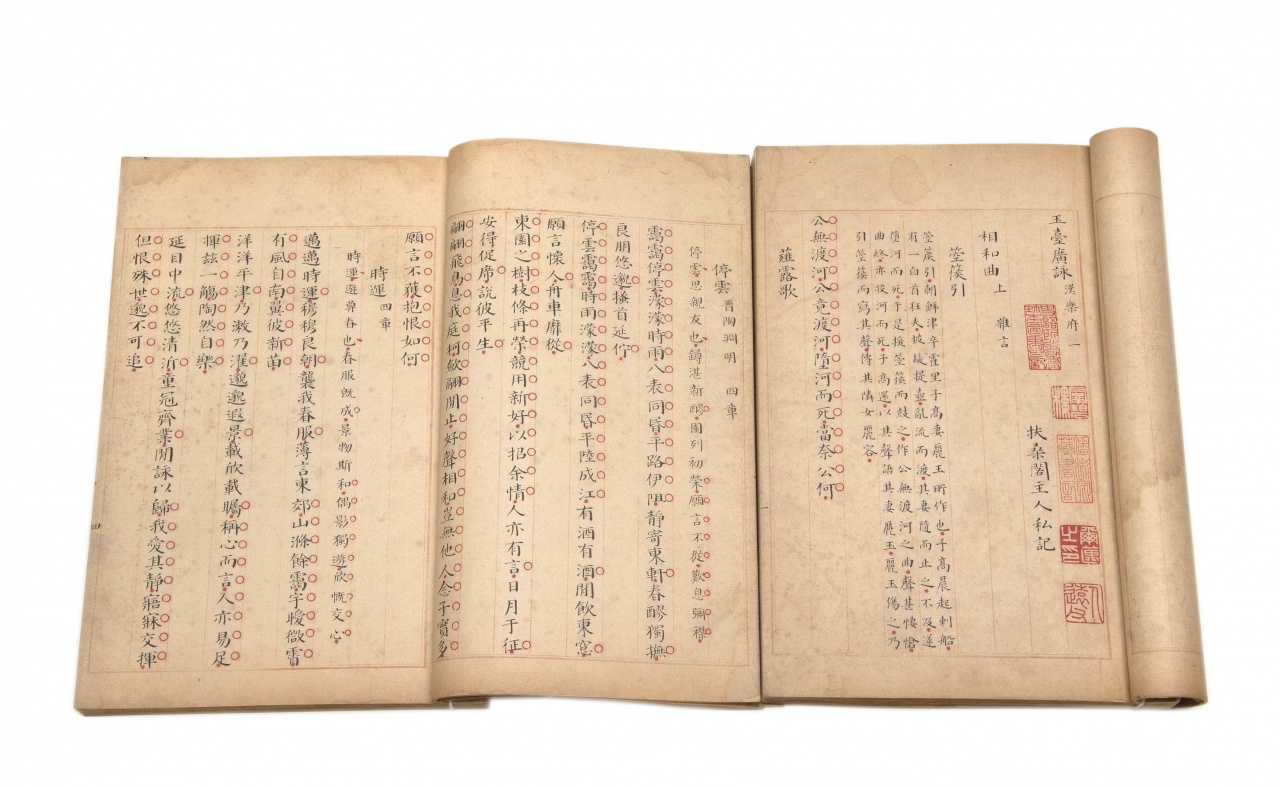 玉臺廣詠 漢樂府一
扶桑閣主人私記
相和曲上 雜言
箜篌引
箜篌引朝鮮津卒霍里子高妻麗玉所作也子高晨起刺船
有一白首狂夫披髮提壺亂流而渡其妻隨而止之不及遂
墮河而死于是援箜篌而鼓之作公無渡河之曲聲甚悽愴
曲終亦投河而死子高還以其聲語其妻麗玉麗玉傷之乃
引箜篌而寫其聲傳其隣女麗容
公無渡河公竟渡河墮河而死當奈公何
薤露歌
停雲 晉陶淵明 四章
停雲思親友也罇湛新醪園列初榮願言不從歎息彌襟
靄靄停雲濛濛時雨八表同昏平路伊阻靜寄東軒春醪獨撫
良朋悠邈搔首延佇
停雲靄靄時雨濛濛八表同昏平陸成江有酒有酒閒飲東窓
願言懷人舟車靡從
東園之樹枝條再榮競用新好以招余情人亦有言日月于征
安得促席說彼平生
翩翩飛鳥息我庭柯斂翮閒止好聲相和豈無他人念子實多
願言不獲抱恨如何
時運 四章
時運遊暮春也春服既成景物斯和偶影獨遊欣慨交心
邁邁時運穆穆良朝襲我春服薄言東郊山滌餘靄宇曖微霄
有風自南翼彼新苗
洋洋平津乃漱乃濯邈邈遐景載欣載矚稱心而言人亦易足
揮茲一觴陶然自樂
延目中流悠悠清沂童冠齊業閒詠以歸我愛其靜寤寐交揮
但恨殊世邈不可追
四